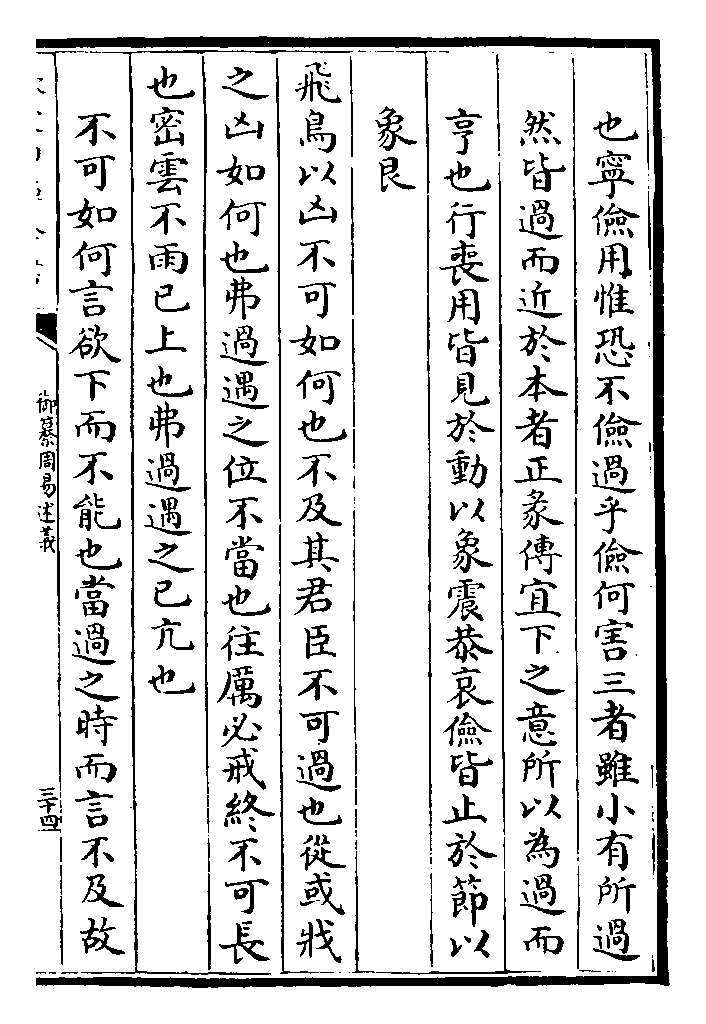 也寧儉用惟恐不儉過乎儉何害三者雖小有所過
然皆過而近於本者正彖傳宜下之意所以為過而
亨也行喪用皆見於動以象震恭哀儉皆止於節以
象艮
飛鳥以凶不可如何也不及其君臣不可過也從或戕
之凶如何也弗過遇之位不當也往厲必戒終不可長
也密雲不雨已上也弗過遇之已亢也
不可如何言欲下而不能也當過之時而言不及故
御纂周易述義
三十四